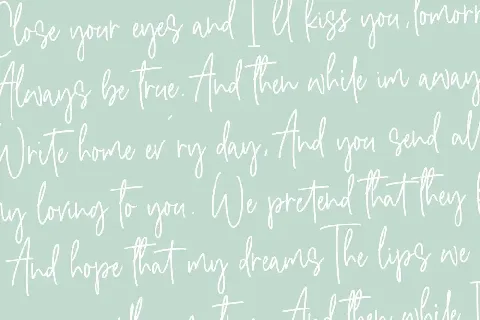 Close your eyes and I'll kiss you, tomorr
Always be true. And then while im away
Write home ev'ry day, And you send all
my loving to you. We pretend that they
And hope that my dreams The lips we
And then while I